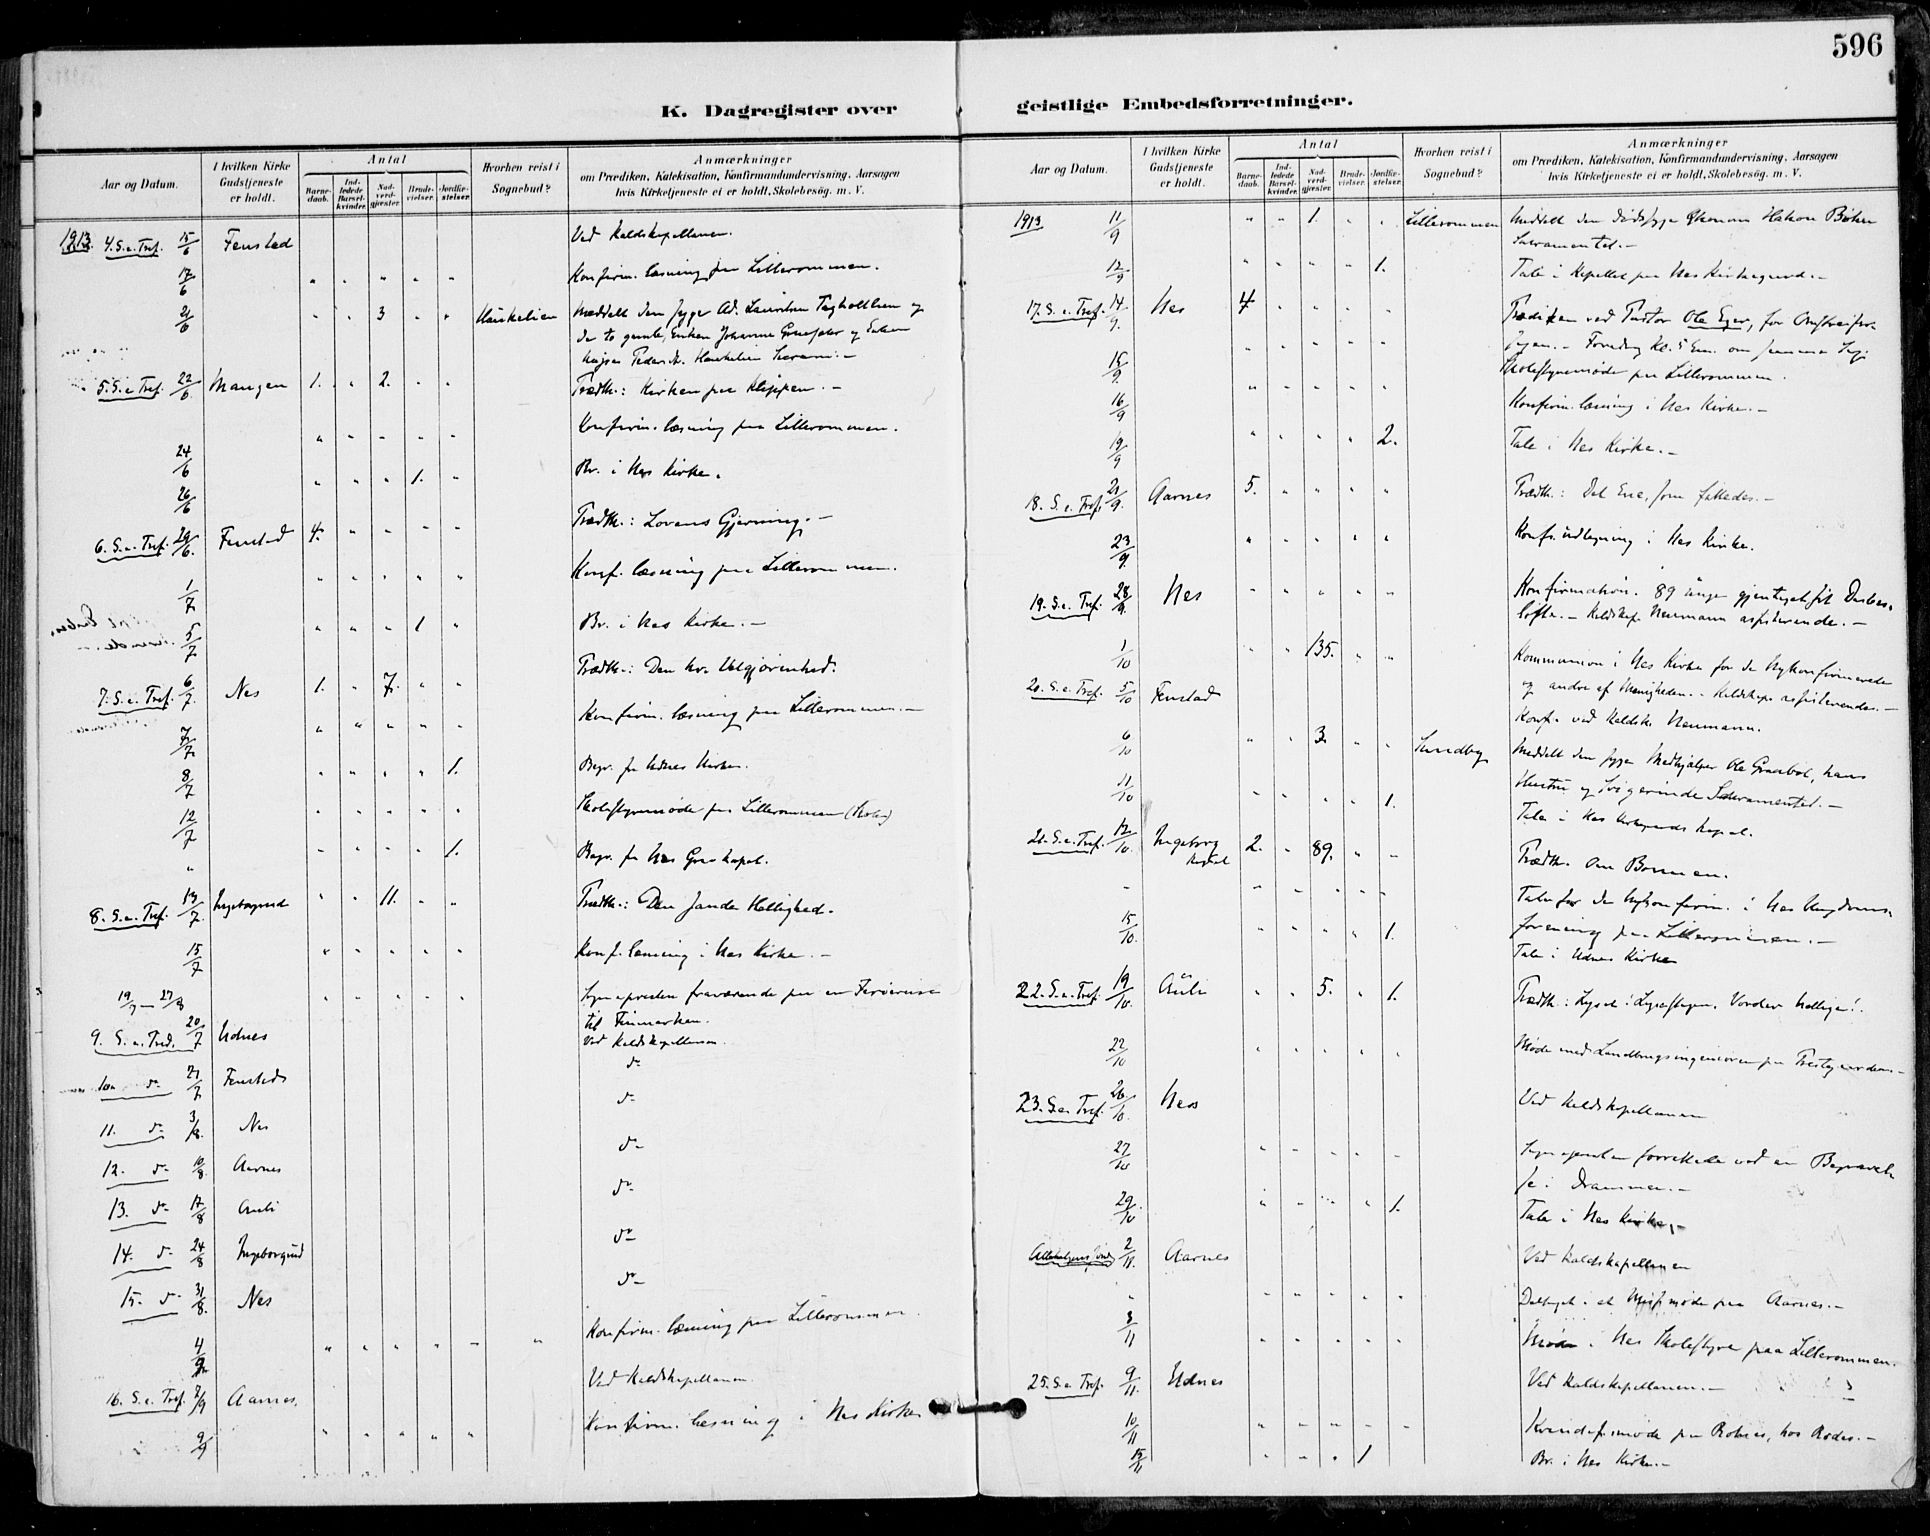 596
K. Dagregister over geistlige Embedsforretninger.
Aar og Datum. I hvilken Kirke Gudstjeneste er holdt. Antal Barnedaab. Indledede Barselkvinder. Nadverdgjæster. Brudevielser. Jordfæstelser. Hvorhen reist i Sognebud? Anmærkninger om Prædiken, Katekisation, Konfirmandundervisning, Aarsagen hvis Kirketjeneste ei er holdt, Skolebesøg, m. V.
1913. 4. S. e. Tref. 15/6 Fenstad Ved Kaldskapellanen.
17/6 " " " " " Konfirm. læsning paa Lillerommen.
21/6 " " 3 " " Haukelien Meddelt den syge Ad. Lauritsen og
de to gamle, Enken Johanne og Enken
Kajsa Haukelien Sacram. -
5. S. e. Tref. 22/6 Mangen 1. " 2. " " Prædk.: Kirken paa Klippen. -
24/6 " " " " " Konfirm. læsning paa Lillerommen.
26/6 " " " 1. " Br. i Nes Kirke.
6. S. e. Tref. 29/6. Fenstad 4. " " " " Prædk.: Lovens Gjerning. -
1/7 " " " " " Konf. læsning paa Lillerommen.
5/7 " " " 1 " Br. i Nes Kirke. -
7. S. e. Tref. 6/7. Nes 1. " 7. " " Prædk.: Den kr. Velgjørenhed.
7/7 " " " " " Konfirm. læsning paa Lillerommen. -
8/7 " " " " 1. Begr. fr Udnes Kirke.
12/7 " " " " " Skolestyremøde paa Lillerommen
" " " " " 1. Begr. fr Nes Gravkapel.
8. S. e. Tref. 13/7. Ingeborgrud " " 11. " " Prædk.: Den sande Hellighed.
15/7 " " " " " Konf. læsning i Nes Kirke. -
19/7 - 27/8 " " " " " Sognepresten fraværende paa en Ferierejse
til Finmarken.
9. S. e. Tref. 20/7 Udnes Ved Kaldskapellanen.
10. do 27/7 Fenstad do
11. do 3/8. Nes do
12. do 10/8. Aarnes do
13. do 17/8 Auli do
14. do 24/8 Ingeborgrud do
15. do 31/8. Nes do
4/9 " " " " " " Konfirm. læsning paa Lillerommen.
16. S. e. Tref. 7/9 Aarnes. Ved Kaldskapellanen.
9/9 " " " " " Konfirm. læsning i Nes Kirke
Aar og Datum. I hvilken Kirke Gudstjeneste er holdt. Antal Barnedaab. Indledede Barselkvinder. Nadverdgjæster. Brudevielser. Jordfæstelser. Hvorhen reist i Sognebud? Anmærkninger om Prædiken, Katekisation, Konfirmandundervisning, Aarsagen hvis Kirketjeneste ei er holdt, Skolebesøg, m. V.
1913 11/9 " " 1. " " Lillerommen Meddelt den dødssyge Hakon Bøhn
Sacramentet. -
12/9 " " " " 1. Tale i Kapellet paa Nes Kirkegaard. -
17. S. e. Tref. 14/9. Nes 4 " " " " Prædiken ved Pastor Ole Eger, for
Foredrag Kl. 5 Em. om
15/9. " " " " " Skolestyremøde paa Lillerommen.
16/9 " " " " " Konfirm. læsning i Nes Kirke. -
19/9 " " " " 2. Tale i Nes Kirke. -
18. S. e. Tref. 21/9. Aarnes 5. " " " " Prædk.: Det Ene, som fattedes. -
23/9. " " " " " Konf. i Nes Kirke.
19. S. e. Tref. 28/9. Nes " " " " " Konfirmation. 89 unge gjentog sit Daabs-
løfte. - Kaldskap. Neumann assisterende. -
1/10 " " 135. " " Kommunion i Nes Kirke for de Nykonfirmerede
og andre af Menigheden. - Kaldskap. assisterende. -
20. S. e. Tref. 5/10 Fenstad Konf. ved Kaldsk. Neumann.
6/10 " " 3. " " Sundby Meddelt den syge Medhjælper Ole hans
Hustru og Svigerinde Sacramentet. -
11/10 " " " " 1. Tale i Nes Kirkegaards Kapel.
21. S. e. Tref. 12/10. Ingeborgrud 2. " 89. " " Prædk. om Bønnen.
" " " " " " Tale for de Nykonfirm. i Nes Ungdoms-
forening paa Lillerommen. -
15/10. " " " " 1. Tale i Udnes Kirke
22. S. e. Tref. 19/10. Auli " " 5. " 1. Prædk.: Vorder hellige!
22/10 " " " " " Møde med Landbrugsingeniøren paa
23. S. e. Tref. 26/10. Nes Ved Kaldskapellanen
27/10 " " " " " Sognepresten forrettede ved en Begravel-
se i Drammen. -
29/10 " " " " 1. Tale i Nes Kirke. -
Allehelgens Sønd. 2/11. Aarnes Ved Kaldskapellanen
" " " " " " Deltaget i et møde paa Aarnes. -
3/11 " " " " " Møde i Nes Skolestyre paa Lillerommen.
25. S. e. Tref. 9/11. Udnes Ved Kaldskapellanen. -
10/11 " " " " " Kvindef. møde paa
15/11 " " " 1 Br. i Nes Kirke. -